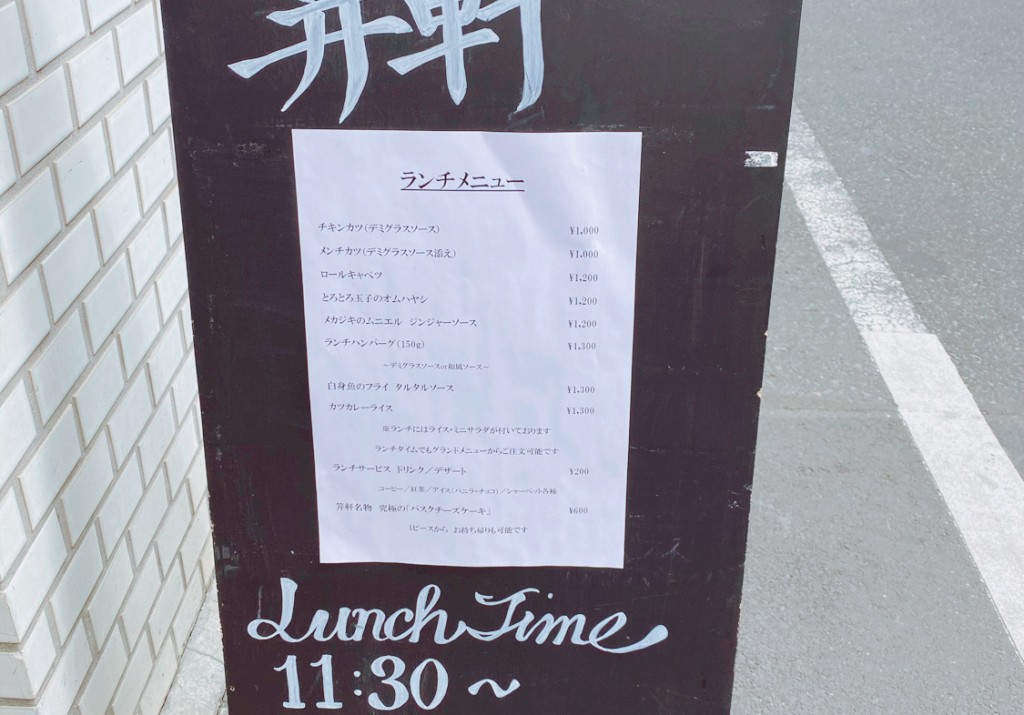 軒
ランチメニュー
チキンカツ(デミグラスソース) ¥1,000
メンチカツ(デミグラスソース添え) ¥1,000
ロールキャベツ ¥1,200
とろとろ玉子のオムハヤシ ¥1,200
メカジキのムニエル ジンジャーソース ¥1,200
ランチハンバーグ(150g) ¥1,300
~デミグラスソースor和風ソース~
白身魚のフライ タルタルソース ¥1,300
カツカレーライス ¥1,300
※ランチにはライス・ミニサラダが付いております
ランチタイムでもグランドメニューからご注文可能です
ランチサービス ドリンク/デザート ¥200
コーヒー/紅茶/アイス(バニラ・チョコ)/シャーベット各種
軒名物 究極の「バスクチーズケーキ」 ¥600
1ピースから お持ち帰りも可能です
Lunch Time
11:30 ~